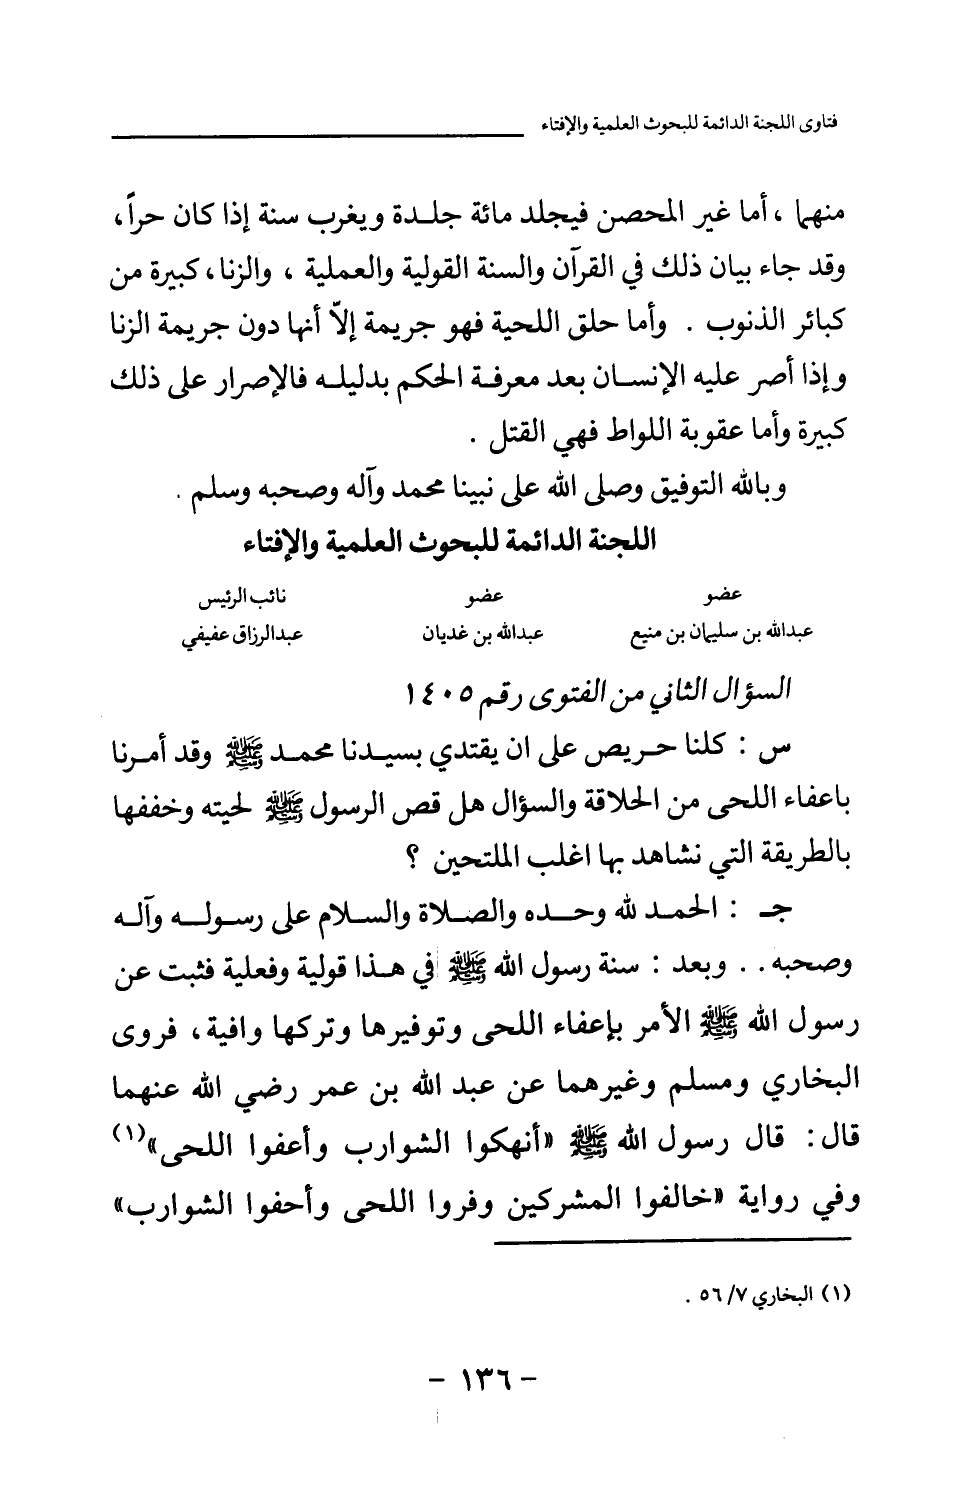 فتاوى اللجنة الدائمة للبحوث العلمية والإفتاء
منهما ، أما غير المحصن فيجلد مائة جلدة ويغرب سنة إذا كان حراً،
وقد جاء بيان ذلك في القرآن والسنة القولية والعملية ، والزنا، كبيرة من
كبائر الذنوب . وأما حلق اللحية فهو جريمة إلاّ أنها دون جريمة الزنا
وإذا أصر عليه الإنسان بعد معرفة الحكم بدليله فالإصرار على ذلك
كبيرة وأما عقوبة اللواط فهي القتل .
وبالله التوفيق وصلى الله على نبينا محمد وآله وصحبه وسلم .
اللجنة الدائمة للبحوث العلمية والإفتاء
عضو عضو نائب الرئيس
عبدالله بن سليمان بن منيع عبدالله بن غديان عبدالرزاق عفيفي
السؤال الثاني من الفتوى رقم ١٤٠٥
س : كلنا حريص على ان يقتدي بسيدنا محمد ﷺ وقد أمرنا
باعفاء اللحى من الحلاقة والسؤال هل قص الرسول ﷺ لحيته وخففها
بالطريقة التي نشاهد بها اغلب الملتحين ؟
جـ : الحمد لله وحده والصلاة والسلام على رسوله وآله
وصحبه . . وبعد : سنة رسول الله ﷺ في هذا قولية وفعلية فثبت عن
رسول الله ﷺ الأمر بإعفاء اللحى وتوفيرها وتركها وافية، فروى
البخاري ومسلم وغيرهما عن عبد الله بن عمر رضي الله عنهما
قال: قال رسول الله ﷺ «أنهكوا الشوارب وأعفوا اللحى»(١)
وفي رواية «خالفوا المشركين وفروا اللحى وأحفوا الشوارب»
(١) البخاري ٥٦/٧ .
- ١٣٦ -